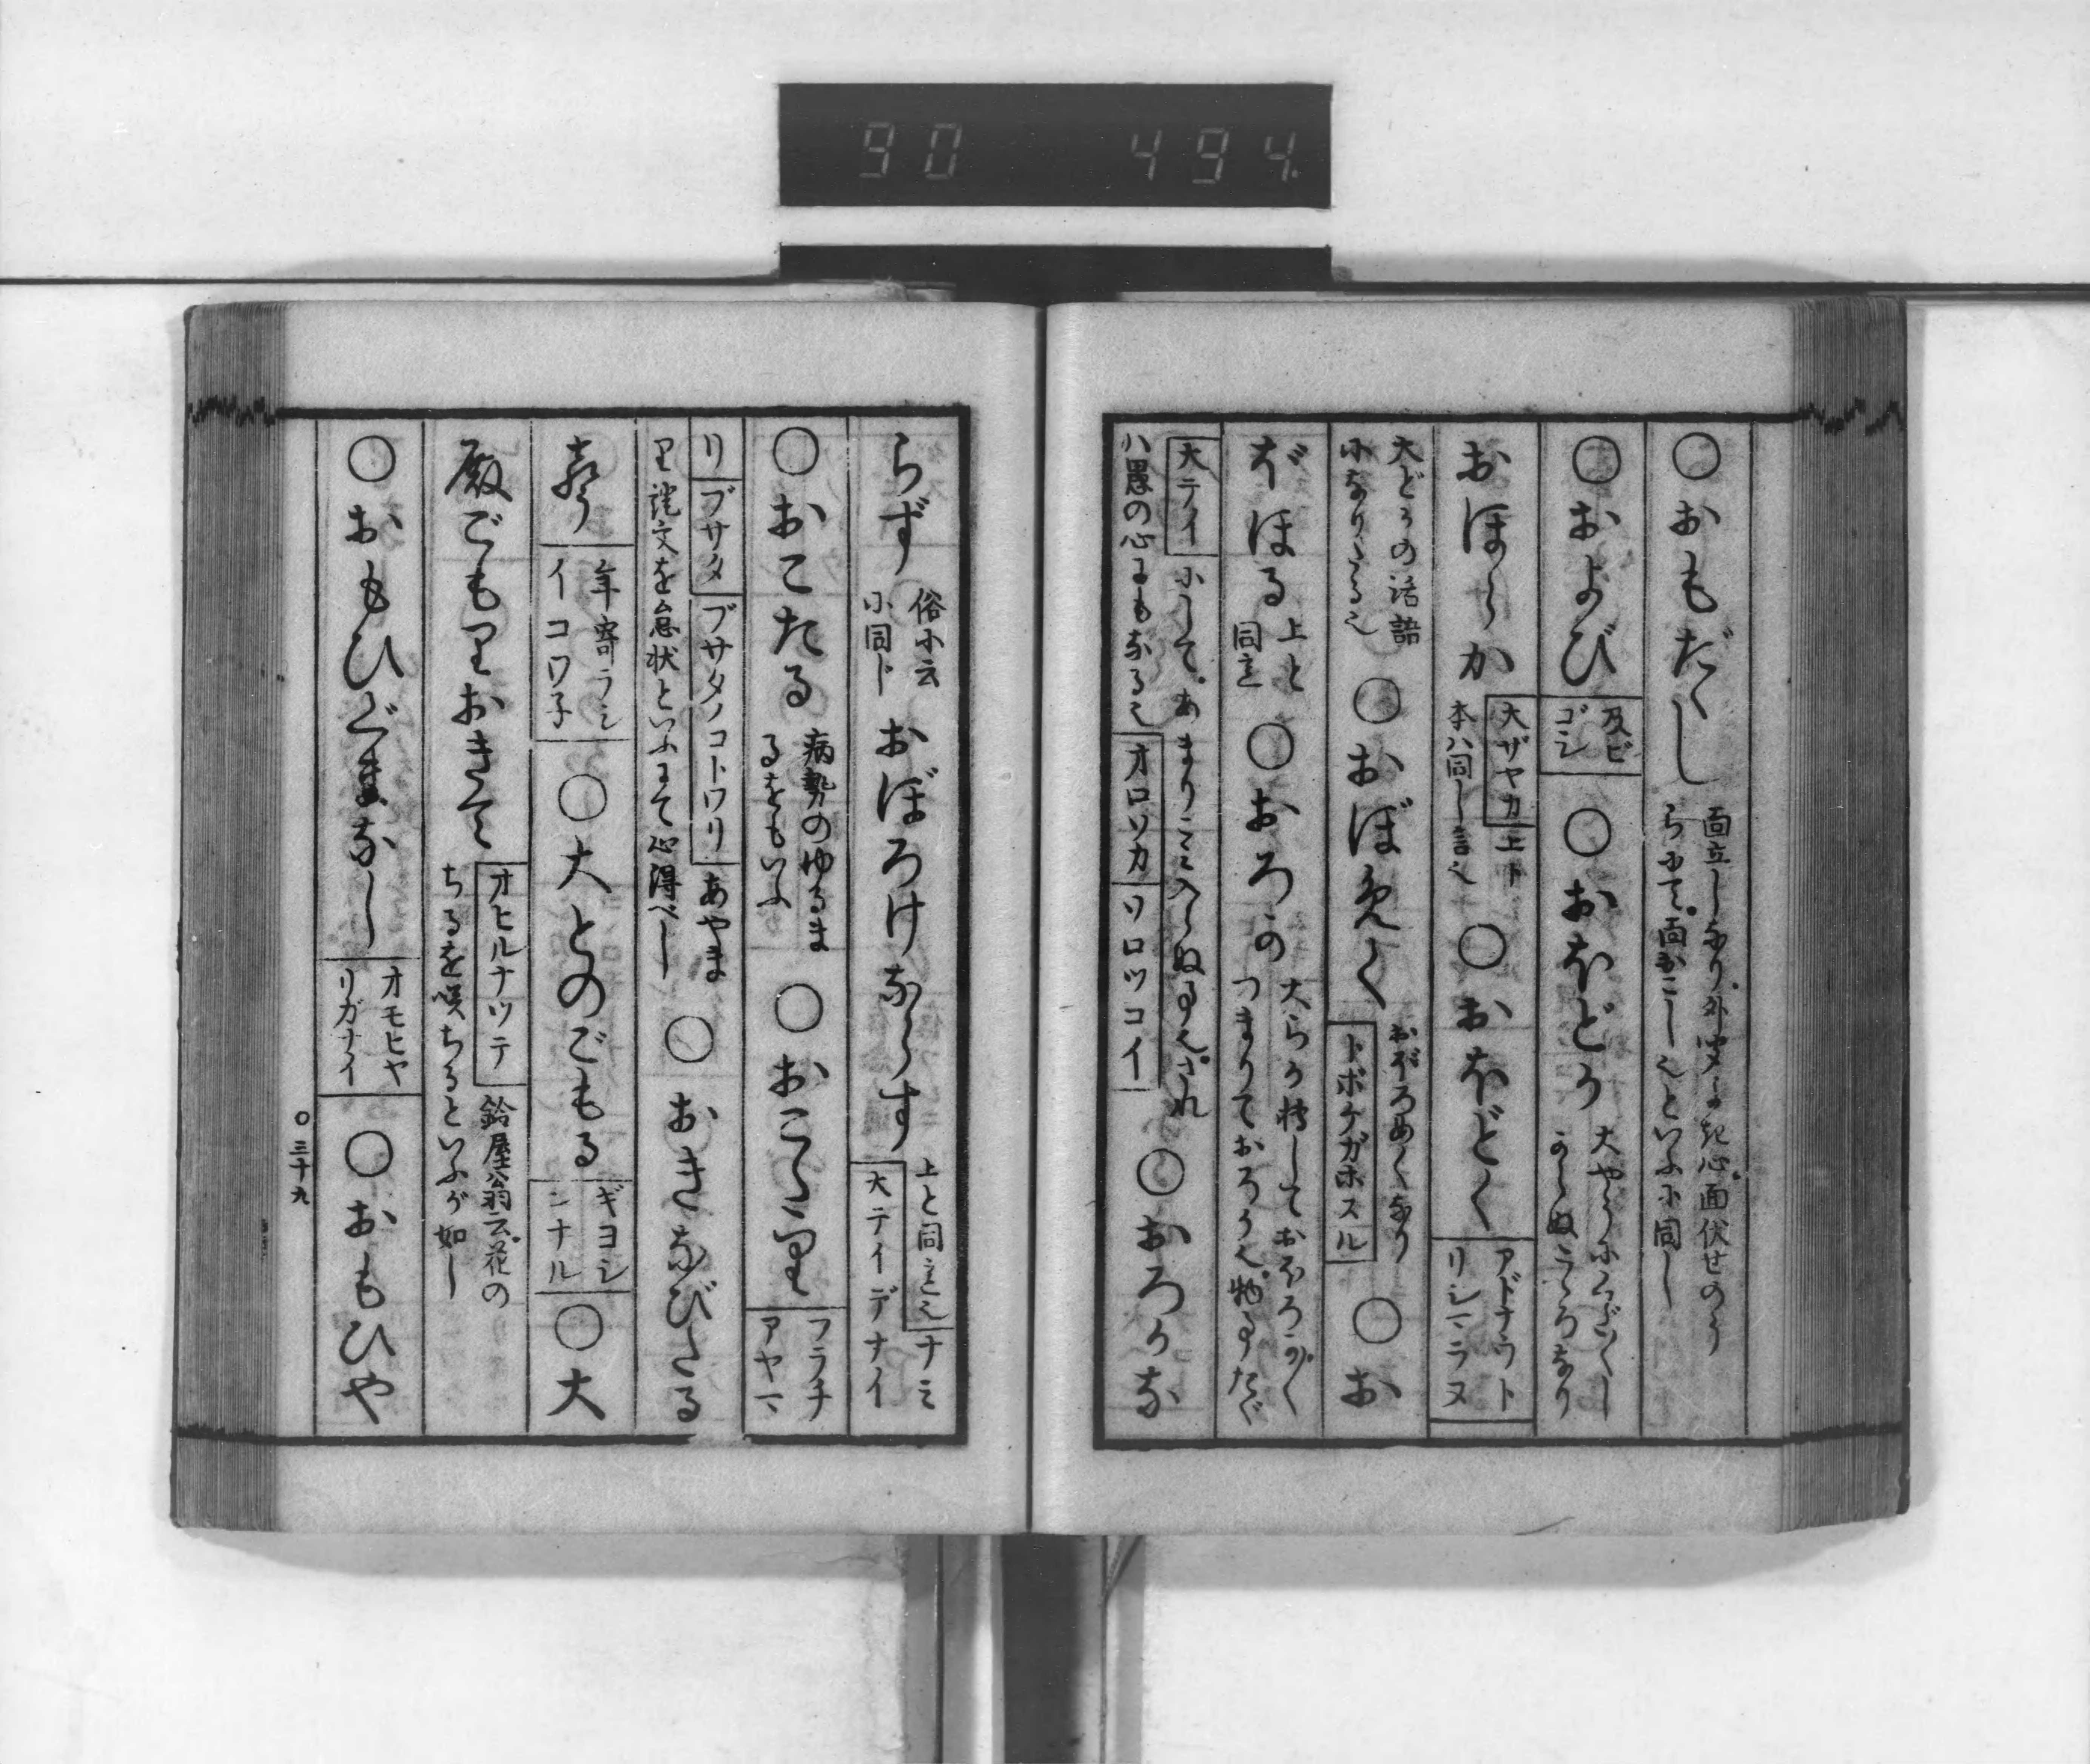 90 494.
○おもだゝし 面立しなり。外聞よき心。面伏せのう
らにて。面おこしといふに同じ
○および 及ビゴシ ○おほどか 大やうにくだ〳〵し
からぬこゝろなり
おほらか 大ザヤカ 上ト本ハ同じ言也 ○おほどく アドナウトリシマラヌ
大どかの活語
になりたる也 ○おぼめく おぼろめくなり トボケガホスル ○お
ぼほる 上と同じ ○おろか 大らか転じておほろかく
つまりておろか也。物事たど
大テイ にして。あまりこころ入らぬ事也。され
ハ愚の心にもなる也 オロソカ ソロツコイ ○おろかな
らず 俗に云に同ド おぼろけならず 上と同じ言也 ナミ大テイデナイ
○おこたる 病勢のゆるま
るをもいふ ○おこたり フラチ アヤマ
リ ブサタ ブサタノコトワリ あやま
り詫文を怠状といふにて心得べし ○おきなびたる
翁 年寄ラシイコワ子 ○大とのごもる ギヨシンナル ○大
殿ごもりおきて オヒルナツテ 鈴屋翁云。花の
ちるを咲ちるといふが如し
○おもひぐまなし オモヒヤリガナイ ○おもひや
○三十九